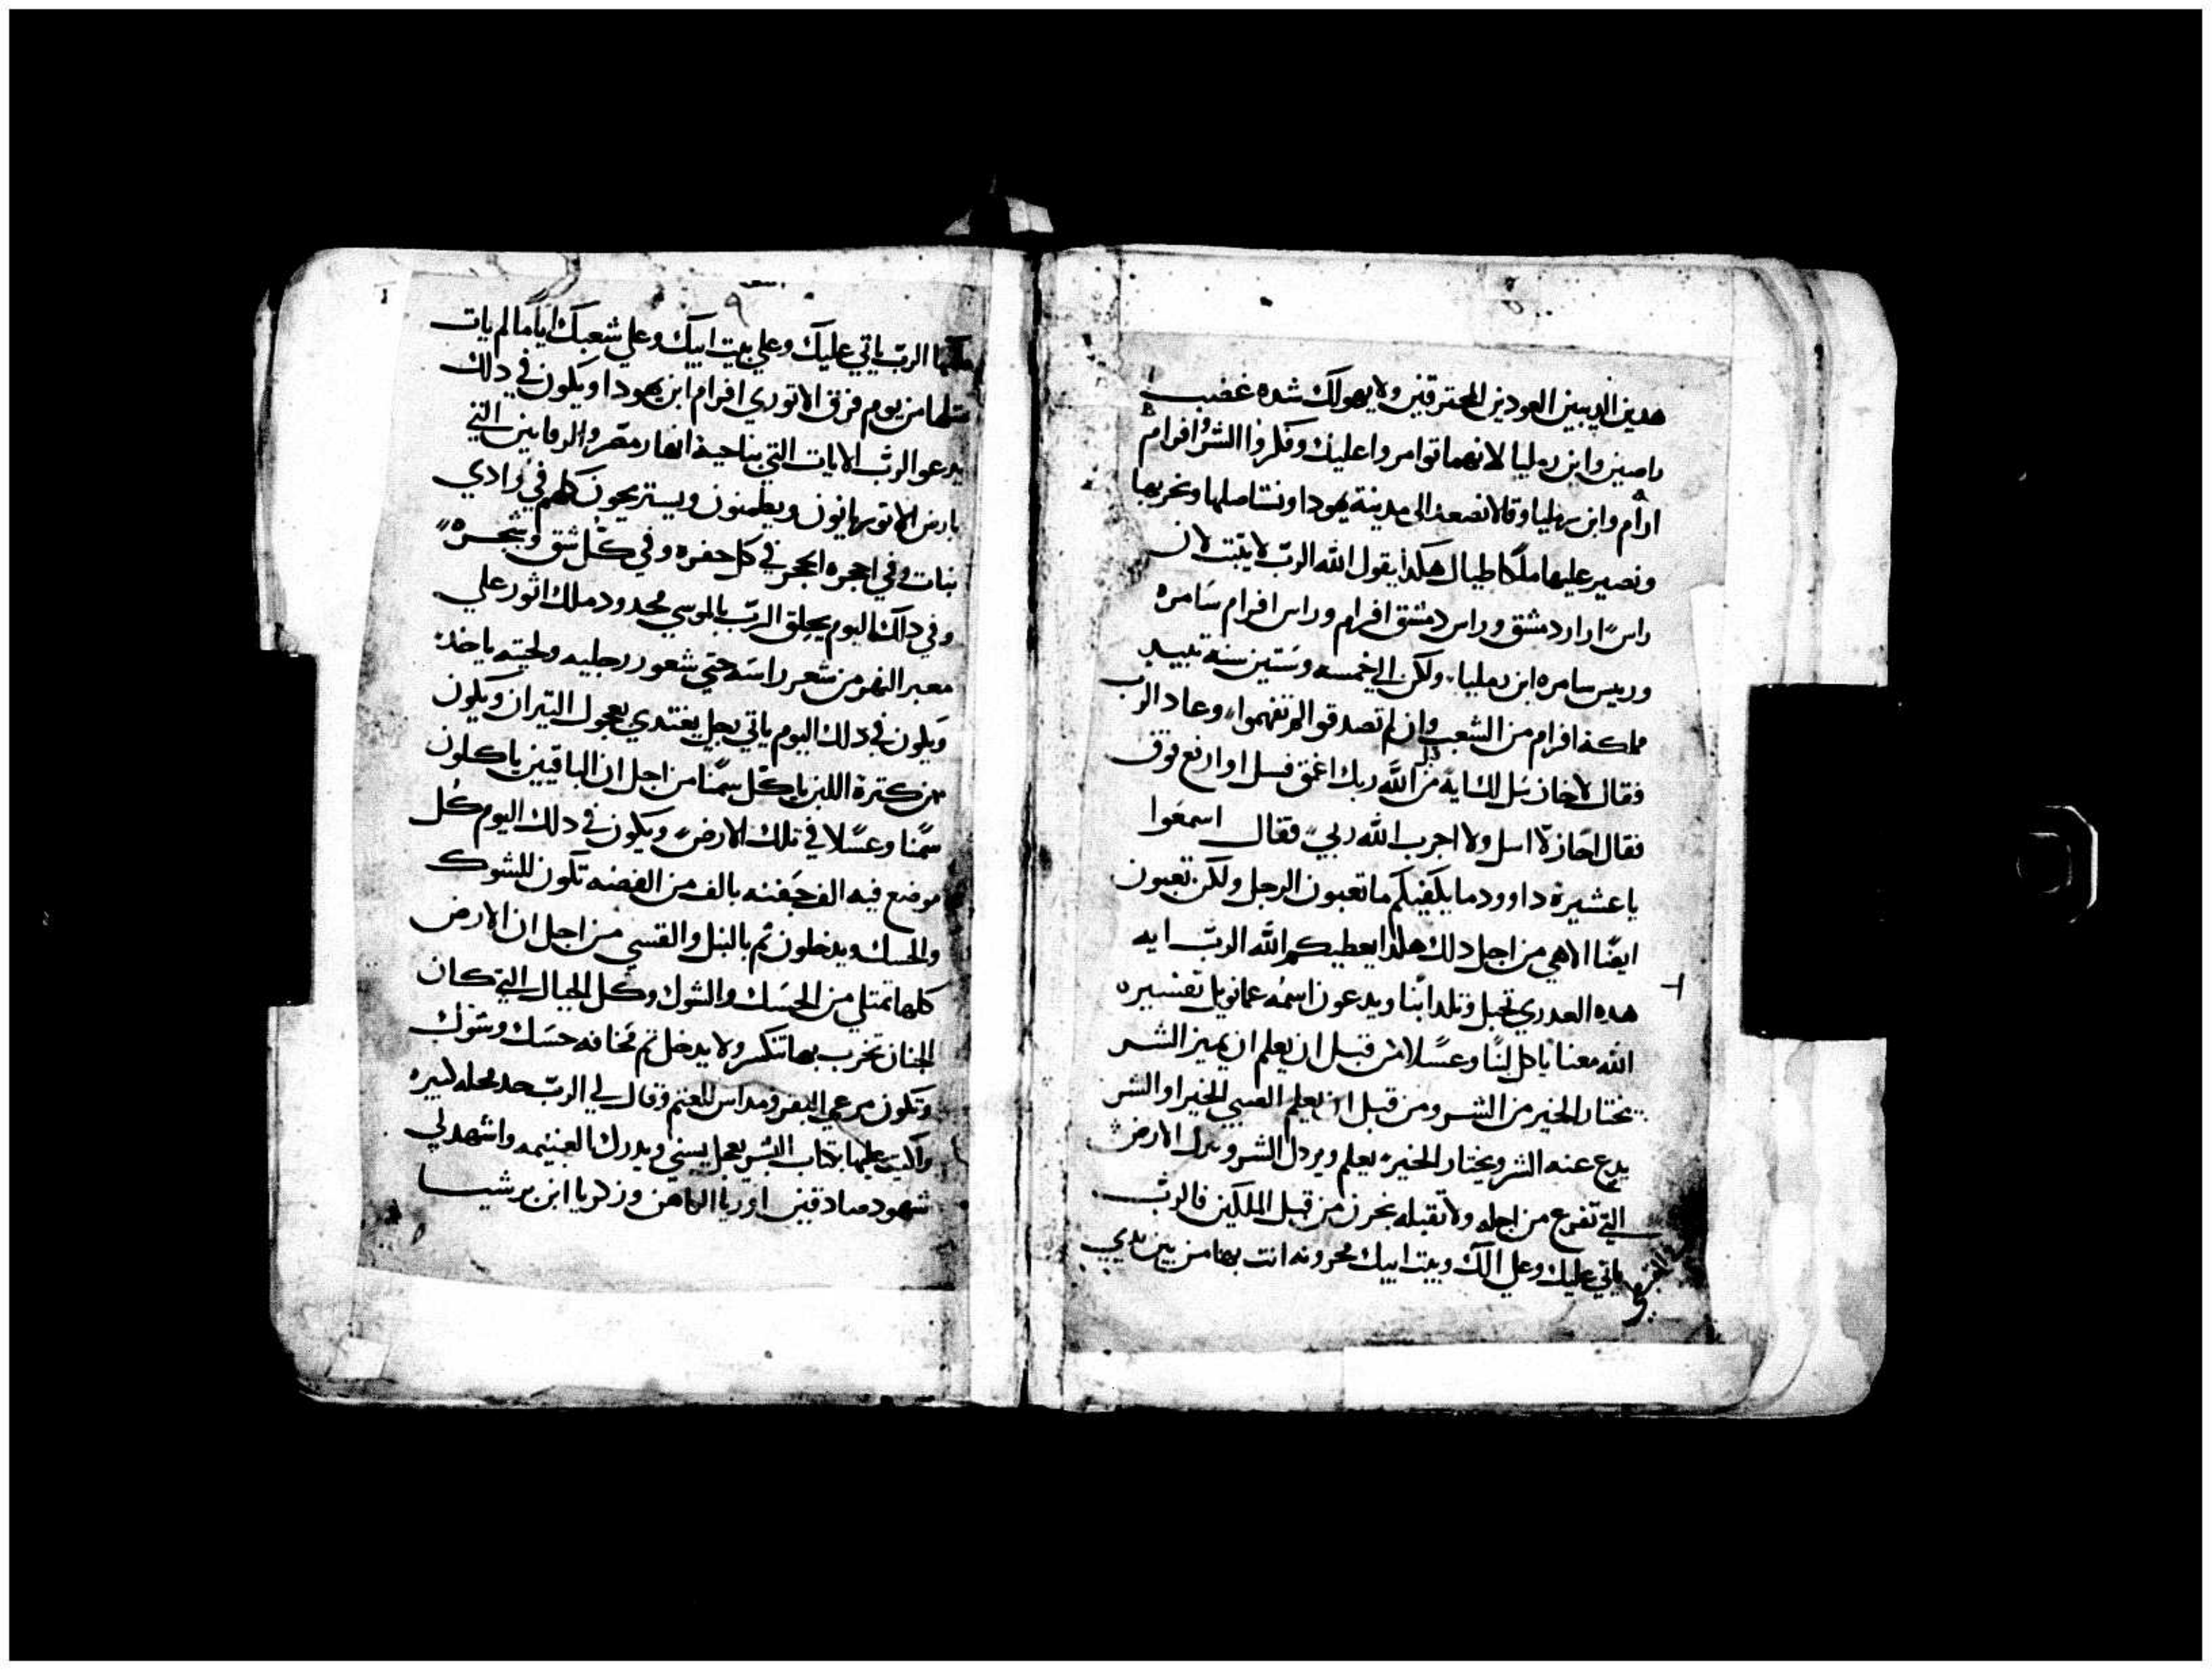 هدين الدبين العودين المحترقين ولا يهولك شده غضب
راصين وابن رمليا لانهما توامروا عليك وفكروا الشر افرام
ارام وابن رمليا وقالا نصعد الى مدينة يهودا ونستاصلها ونخربها
ونصير عليها ملكا طيال هكذا يقول الله الرب لا يثبت لان
راس ارار دمشق وراس دمشق افرام وراس افرام سامره
ورييس سامره ابن رمليا ولكن الي خمسه وستين سنه تبيد
مملكة افرام من الشعب وان لم تصدقوا لم تفهموا وعاد الرب
فقال لاخاز سل لك ايه من الله ربك اغمق فسل او ارفع فوق
فقال احاز لا اسل ولا اجرب الله ربي فقال اسمعوا
يا عشيرة داوود ما يكفيكم ما تعبون الرجل ولكن تعبون
ايضا الاهي من اجل دلك هكدا يعطيكم الله الرب ايه
هده العدري تحبل وتلد ابنا ويدعون اسمه عمانويل تفسيره
الله معنا ياكل لبنا وعسلا من قبل ان يعلم ان يميز الشر
يختار الخير من الشر ومن قبل ان يعلم الصبي الخير او الشر
يدع عنه الشر ويختار الخير يعلم ويردل الشر وتترك الارض
التي تفزع من اجله ولا تقبله بحرن من قبل الملكين فالرب
ياتي عليك وعلي الك وبيت ابيك محرونه انت بها من بين يدي
ملكها الرب ياتي عليك وعلي بيت ابيك وعلي شعبك اياما لم يات
مثلها من يوم فرق الاتوري افرام ابن يهودا ويكون في دلك
يدعو الرب الايات التي بناحية انهار مصر والرقابين التي
بارض الاتور يهايون ويطمنون ويستريحون كلهم في وادي
بنات وفي اجحره الحجر في كل حفره وفي كل شق وشجره
وفي دلك اليوم يحلق الرب بالموسي محدود ملك اثور علي
معبر النهر من شعر راسه حتي شعور رجليه ولحيته ياخد
ويكون في دلك اليوم ياتي رجل يغتدي بعجول التيران ويكون
من كترة اللبن ياكل سمنا من اجل ان الباقيين ياكلون
سمنا وعسلا في تلك الارض ويكون في دلك اليوم كل
موضع فيه الف جفنه بالف من الفضه تكون للشوك
والحسك ويدخلون تم بالنبل والقسي من اجل ان الارض
كلها تمتلي من الحسك والشوك وكل الجبال التي كان
الجنان تخرب بها تنكسر ولا يدخل تم مخافه حسك وشوك
وتكون مرعي البقر ومداس للغنم وقال لي الرب خد محله كبيره
واكتب عليها بكتاب البشر بعجل يسني ويدرك الغنيمه واشهد لي
شهود صادقين اوريا الكاهن وزكريا ابن برشيا